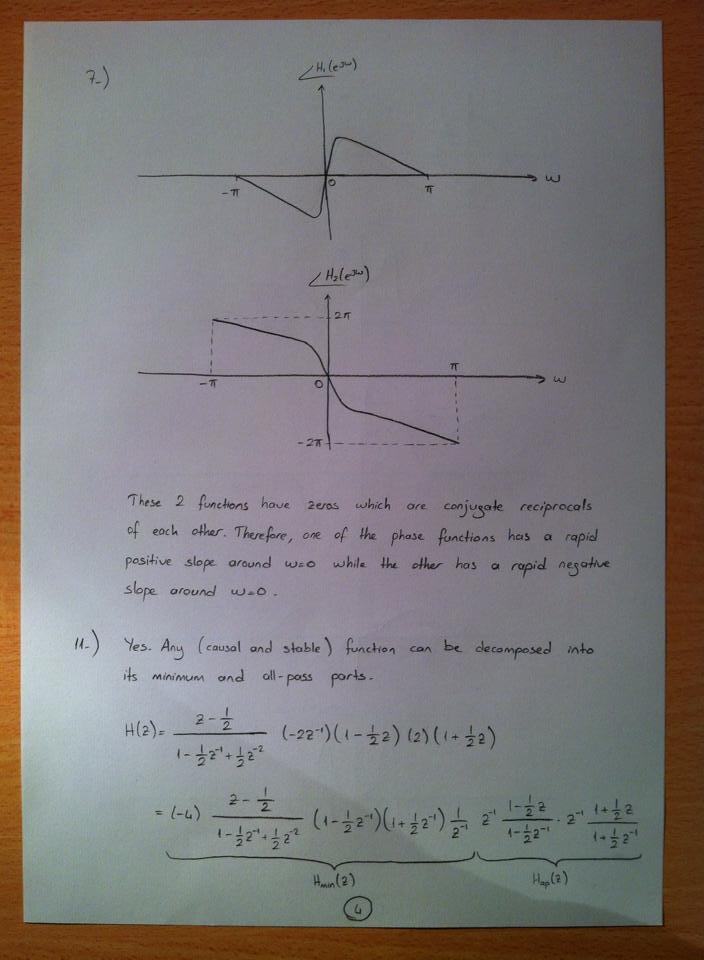 7-)
∠H₁(e^jω)
-π 0 π ω
∠H₂(e^jω)
2π
π
-π 0 ω
-2π
These 2 functions have zeros which are conjugate reciprocals
of each other. Therefore, one of the phase functions has a rapid
positive slope around ω=0 while the other has a rapid negative
slope around ω=0.
11-) Yes. Any (causal and stable) function can be decomposed into
its minimum and all-pass parts.
H(z)= (z - 1/2)/(1 - 1/2 z⁻¹ + 1/2 z⁻²) (-2z⁻¹)(1 - 1/2 z) (2)(1 + 1/2 z)
= (-4) (z - 1/2)/(1 - 1/2 z⁻¹ + 1/2 z⁻²) (1 - 1/2 z⁻¹)(1 + 1/2 z⁻¹) 1/z⁻¹ z⁻¹ (1 - 1/2 z)/(1 - 1/2 z⁻¹) · z⁻¹ (1 + 1/2 z)/(1 + 1/2 z⁻¹)
Hmin(z) Hap(z)
4